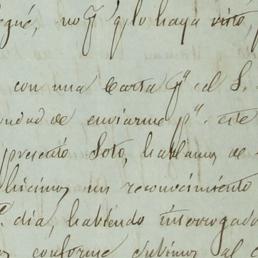 no p.r q.e lo haya visto,
con una Carta p.a el S.
de enviarme p.r este
presento Soto, hablamos de
hicimos un reconocimiento
dia, habiendo interrogado
conforme debimos al